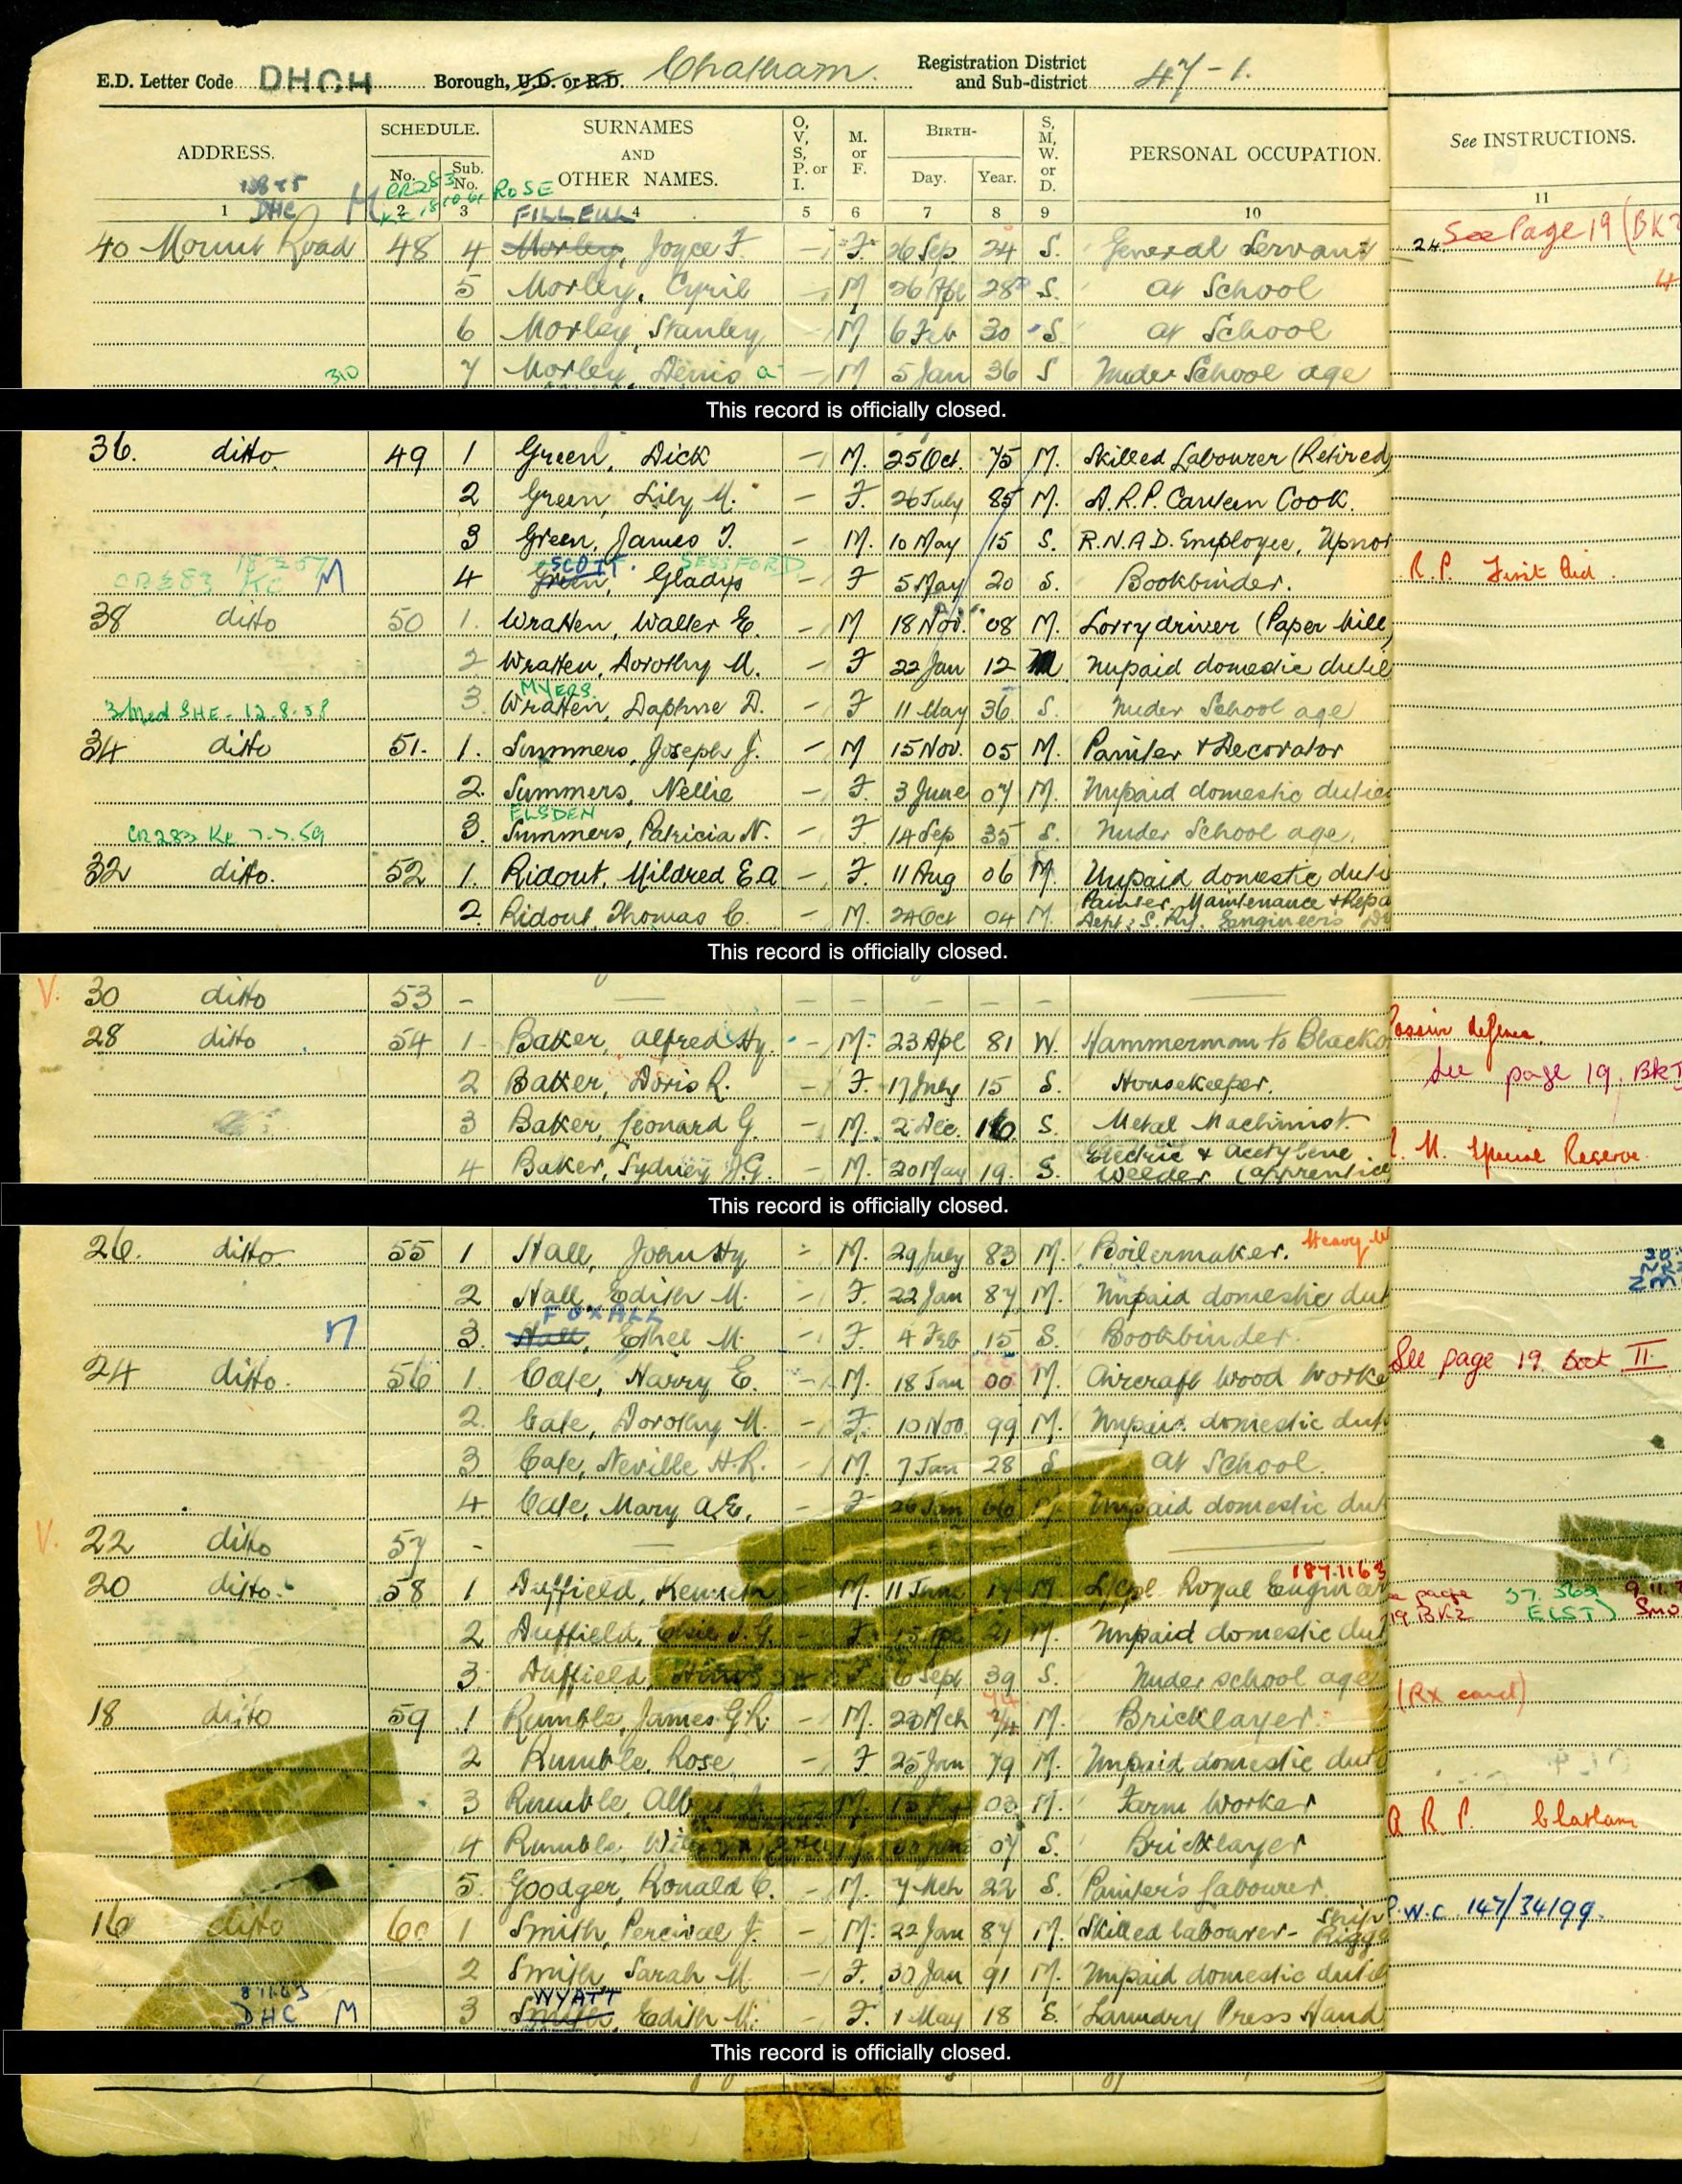 E.D. Letter Code DHCH Borough, U.D. or R.D. Chatham. Registration District and Sub-district 47-1.
ADDRESS. SCHEDULE. SURNAMES AND OTHER NAMES. O, V, S, P. or I. M. or F. BIRTH- S, M, W. or D. PERSONAL OCCUPATION. See INSTRUCTIONS.
No. Sub. No. Day. Year.
CR283 ROSE
DHC M
1 2 3 4 5 6 7 8 9 10 11
FILLEUL
See Page 19 (BK2
40 Mount Road 48 4 Morley, Joyce F. - F. 26 Sep 24 S. General Servant
5 Morley, Cyril - M 26 Apl 28 S. at School
6 Morley, Stanley - M 6 Feb 30 S. at School
310 7 Morley, Denis a - M 5 Jan 36 S Under School age
This record is officially closed.
36. ditto. 49 1 Green, Dick - M. 25 Oct. 75 M. Skilled Labourer (Retired)
2 Green, Lily M. - F. 26 July 85 M. A.R.P. Canteen Cook.
3 Green, James T. - M. 10 May 15 S. R.N.A.D. Employee, Upnor
SCOTT. SESSFORD
CR283 KC M 4 Green, Gladys - F 5 May 20 S. Bookbinder. R.P. First Aid.
38 ditto 50 1. Wratten, Walter E. - M 18 Nov. 08 M. Lorry driver (Paper Mill)
2 Wratten, Dorothy M. - F 22 Jan 12 M. Unpaid domestic dutie
MYERS.
SHE - 12.8.58 3. Wratten, Daphne D. - F 11 May 36 S. Under School age
34 ditto 51. 1. Summers, Joseph J. - M 15 Nov. 05 M. Painter & Decorator
2. Summers, Nellie - F. 3 June 07 M. Unpaid domestic duties
ELSDEN
CR283 KE 7.7.59 3. Summers, Patricia N. - F. 14 Sep 35 S. Under School age.
32 ditto. 52 1. Ridout, Mildred E.A - F. 11 Aug 06 M. Unpaid domestic duti
2. Ridout, Thomas C. - M. 24 Oct 04 M. Painter. Maintenance & Repa
Dept: S. Rly. Engineers
This record is officially closed.
V. 30 ditto 53 - — - - - - - —
28 ditto 54 1 Baker, Alfred Hy. - M. 23 Apl 81 W. Hammerman to Blacks Passive defence.
2 Baker, Doris R. - F. 17 July 15 S. Housekeeper. See page 19. BK
3 Baker, Leonard G. - M. 2 Dec. 16 S. Metal Machinist.
4 Baker, Sydney J.G. - M. 20 May 19. S. Electric & Acetylene Welder (apprentice M. Special Reserve.
This record is officially closed.
26. ditto. 55 1 Hall, John Hy - M. 29 July 83 M. Boilermaker. Heavy W
2 Hall, Edith M. - F. 22 Jan 87 M. Unpaid domestic dut
FOXALL
M 3. Hall, Ethel M. - F. 4 Feb 15 S. Bookbinder.
24 ditto. 56 1. Cate, Harry E. - M. 18 Jan 00 M. Aircraft Wood Worke See page 19. Book II
2. Cate, Dorothy M. - F. 10 Nov. 99 M. Unpaid domestic dut
3 Cate, Neville H.R. - M. 7 Jan 28 S at School.
4. Cate, Mary A.E. - F 26 Jan 66 Unpaid domestic dut
V. 22 ditto 57 - —
187.1163
20 ditto. 58 1 Duffield, Kenneth - M. 11 June 17 M L/Cpl. Royal Engineer page 19. BK2
2 Duffield, Elsie - F. 21 M. Unpaid domestic dut
3. Duffield, - F 6 Sept 39 S. Under school age (RX card)
18 ditto 59 1 Rumble, James G.R. - M. 74 M. Bricklayer.
2 Rumble, Rose - F 25 Jan 79 M. Unpaid domestic duti
3 Rumble, M. 03 M. Farm Worker A R P. Chatham
4 Rumble, 07 S. Bricklayer
5. Goodger, Ronald C. - M. 7 Mch 22 S. Painter's labourer.
16 ditto 60 1 Smith, Percival J. - M. 22 Jan 87 M. Skilled labourer - Ship P.W.C. 147/34199.
2 Smith, Sarah M. - F. 30 Jan 91 M. Unpaid domestic dutie
8 11.63 WYATT
DHC M 3 Smith, Edith M. - F. 1 May 18 S. Laundry Press Hand
This record is officially closed.